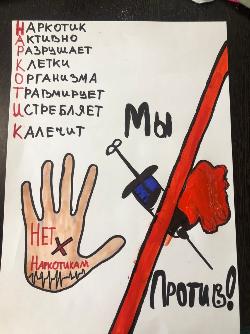 НАРКОТИК
АКТИВНО
РАЗРУШАЕТ
КЛЕТКИ
ОРГАНИЗМА
ТРАВМИРУЕТ
ИСТРЕБЛЯЕТ
КАЛЕЧИТ
МЫ
НЕТ
НАРКОТИКАМ
ПРОТИВ!